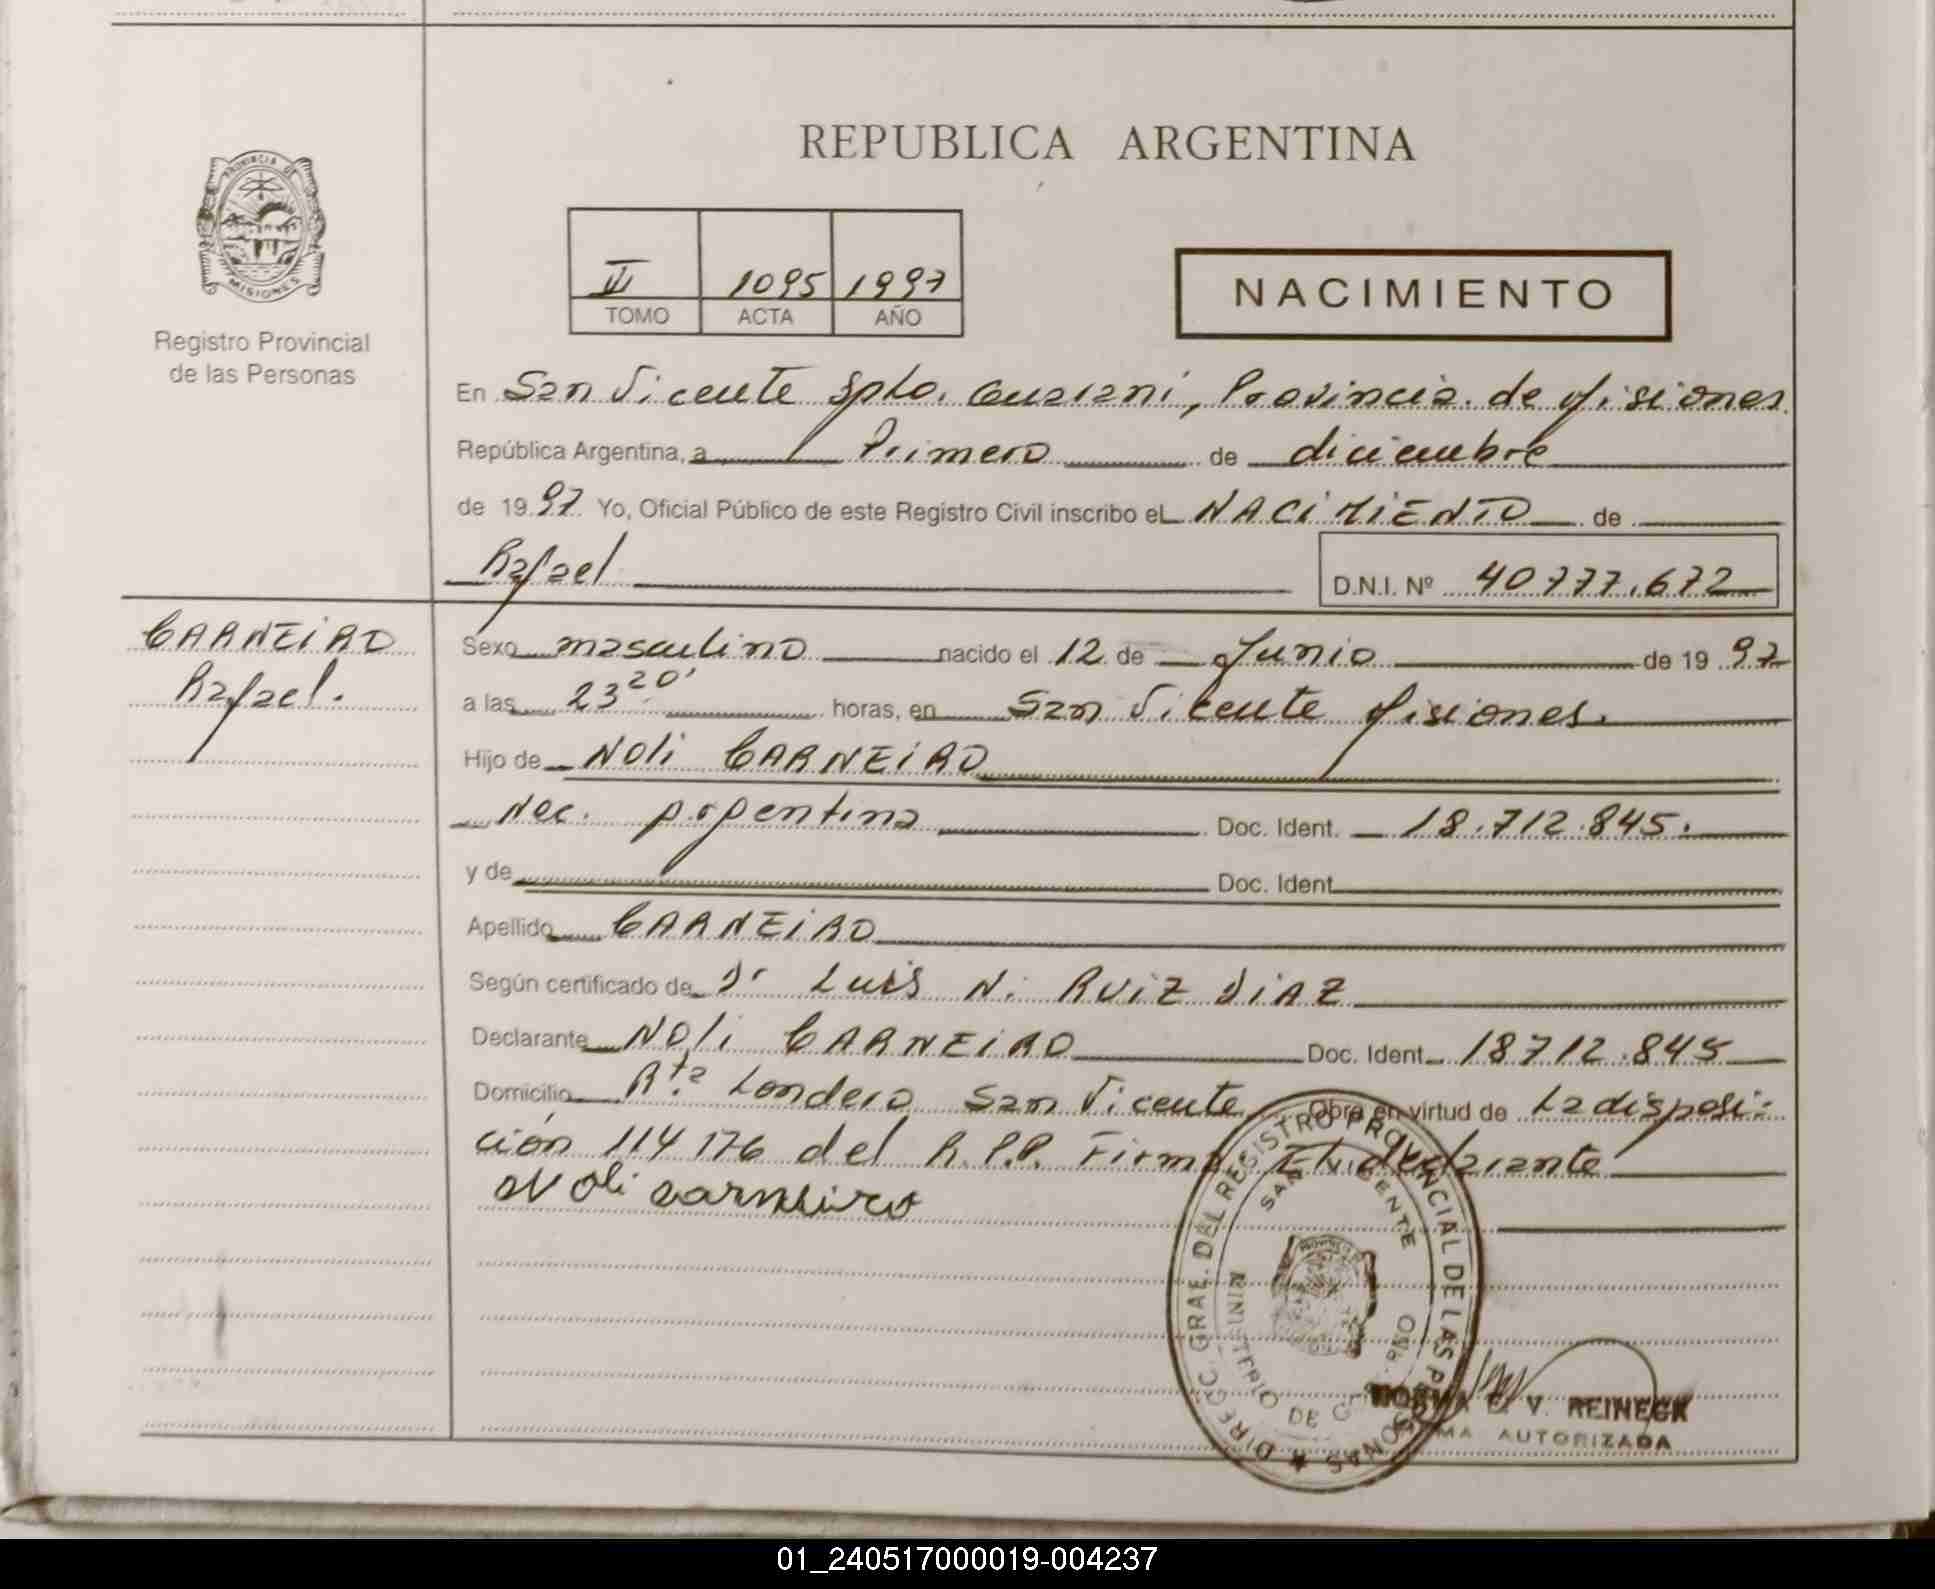 REPUBLICA ARGENTINA
PROVINCIA DE MISIONES
Registro Provincial
de las Personas
1095 1997
TOMO ACTA AÑO
NACIMIENTO
En San Vicente Dpto. Guarani, Provincia de Misiones
República Argentina, a Primero de diciembre
de 1997 Yo, Oficial Público de este Registro Civil inscribo el NACIMIENTO de
Rafael
D.N.I. Nº 40777.672
CARNEIRO
Rafael.
Sexo masculino nacido el 12 de Junio de 1997
a las 23 20' horas, en San Vicente Misiones.
Hijo de NOli CARNEIRO
Nac. Argentina Doc. Ident. 18.712.845.
y de Doc. Ident.
Apellido CARNEIRO
Según certificado de Dr Luis N. RUIZ DIAZ
Declarante NOli CARNEIRO Doc. Ident. 18712.845
Domicilio Rta Londero San Vicente Obra en virtud de La disposi-
ción 114176 del R.P.P. Firma El declarante
Noli carneiro
DIRECC. GRAL. DEL REGISTRO PROVINCIAL DE LAS PERSONAS
SAN VICENTE
MINISTERIO DE GOBIERNO
NORMA E. V. REINECK
FIRMA AUTORIZADA
01_240517000019-004237